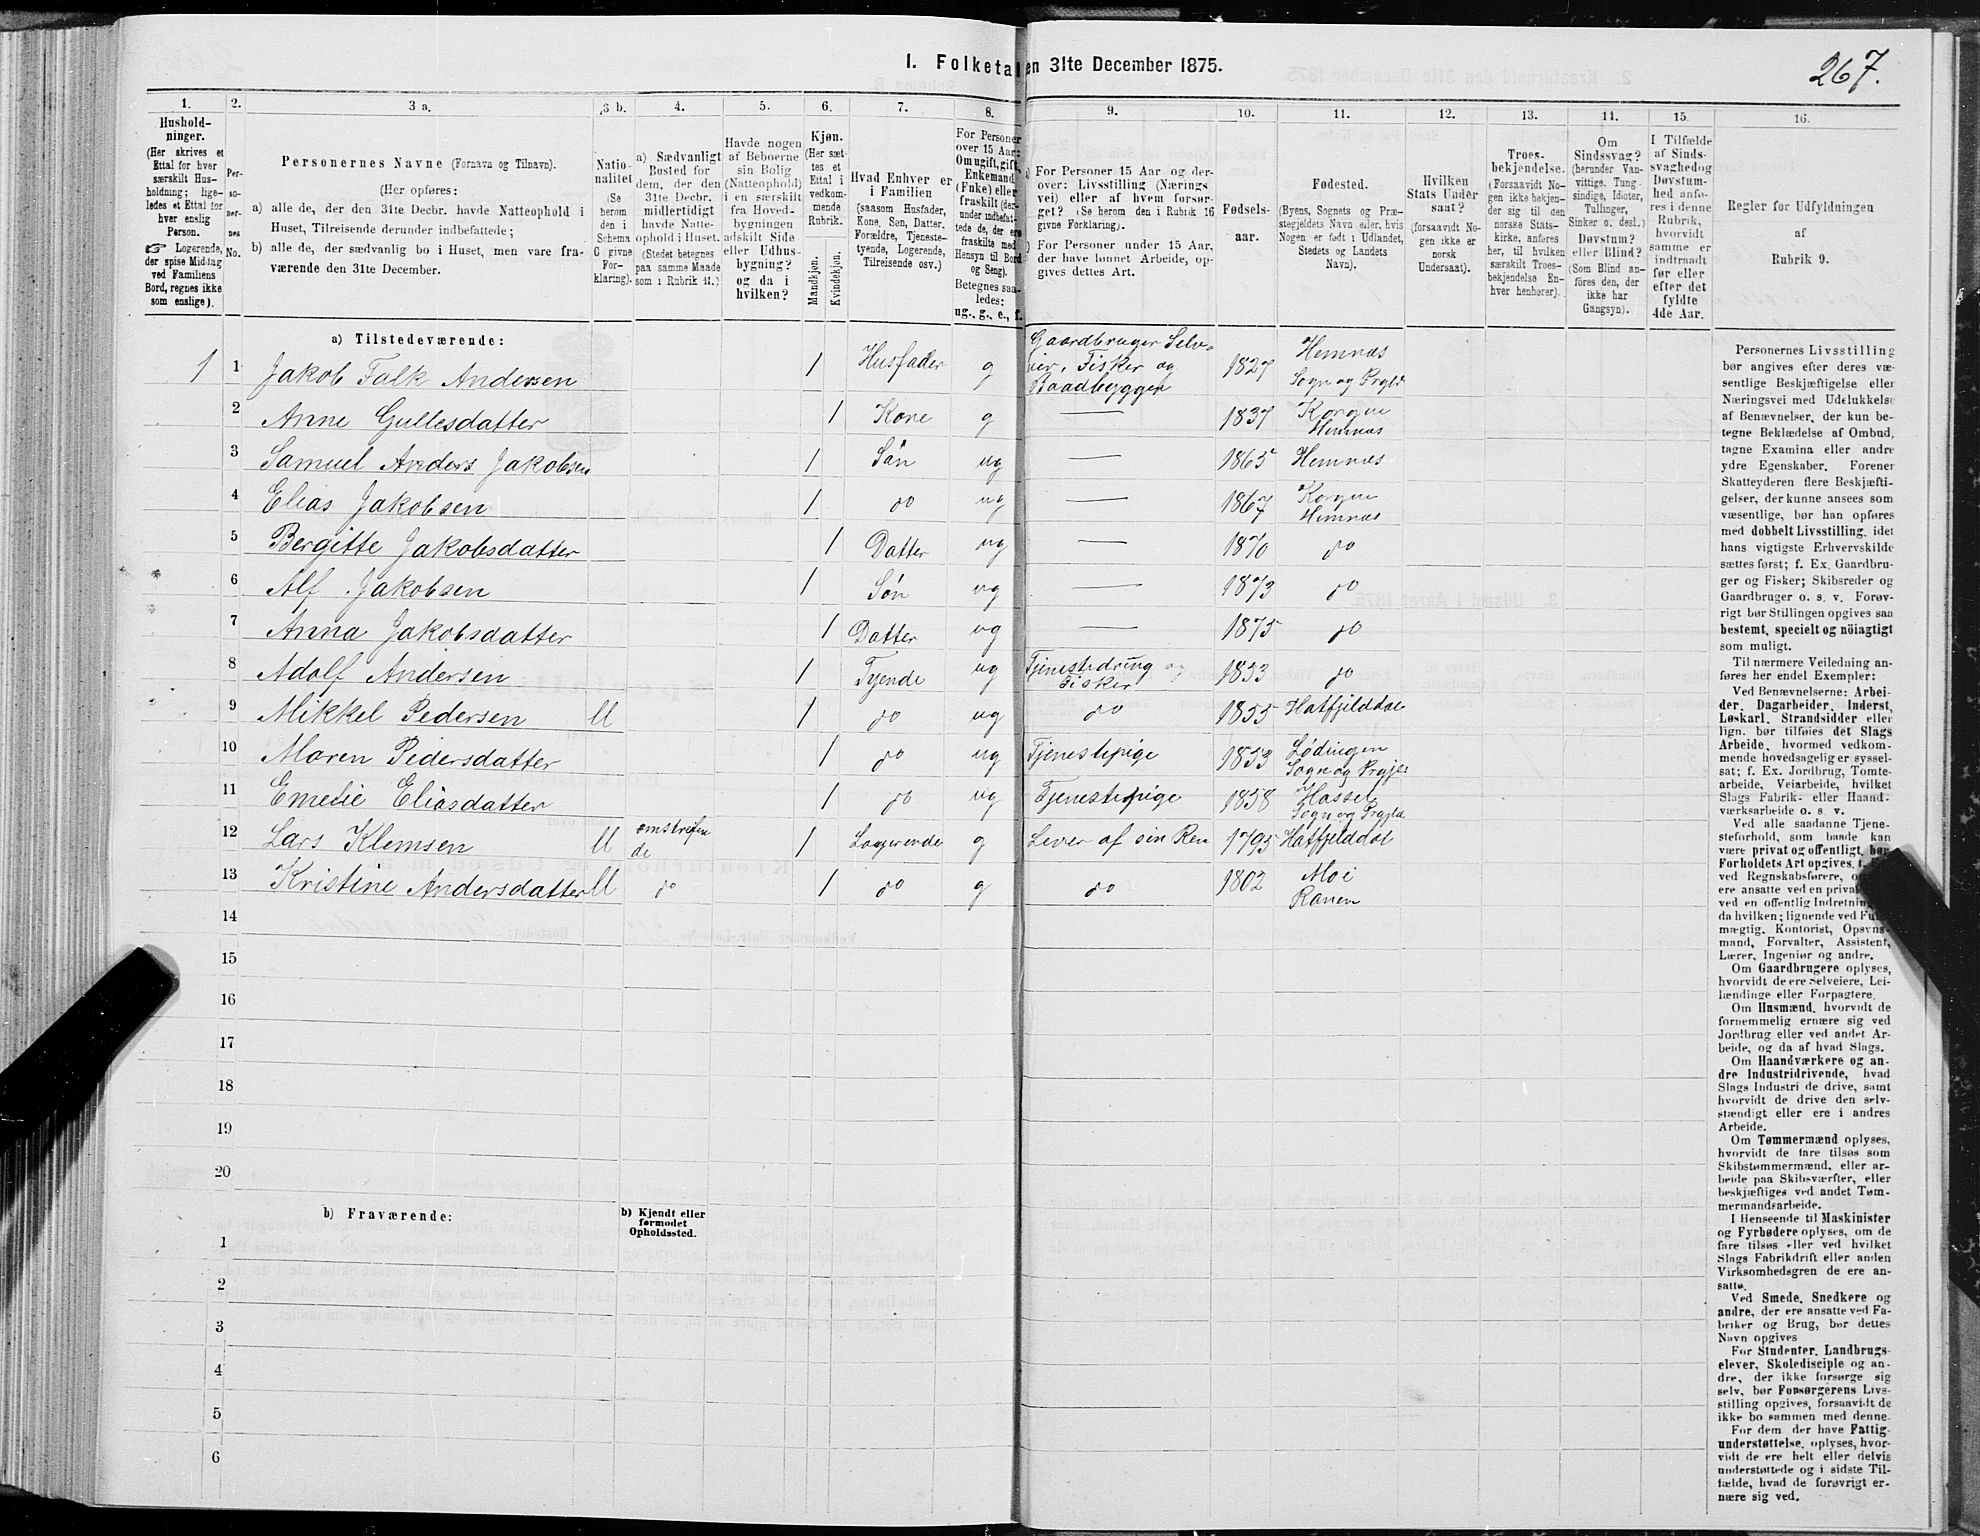 267.
1. Folketa en 31te December 1875.
1. 2. 3 a. 3 b. 4. 5. 6. 7. 8. 9. 10. 11. 12. 13. 14. 15. 16.
Hushold-
ninger.
(Her skrives et
Ettal for hver
særskilt Hus-
holdning; lige-
ledes et Ettal for
hver enslig
Person.
Logerende,
der spise Middag
ved Familiens
Bord, regnes ikke
som enslige).
Per-
so-
ner-
nes
No.
Personernes Navne (Fornavn og Tilnavn).
(Her opføres:
a) alle de, der den 31te Decbr. havde Natteophold i
Huset, Tilreisende derunder indbefattede;
b) alle de, der sædvanlig bo i Huset, men vare fra-
værende den 31te December.
Natio-
nalitet
(Se
herom
den i
Schema
C givne
For-
klaring).
a) Sædvanligt
Bosted for
dem, der den
31te Decbr.
midlertidigt
havde Natte-
ophold i Huset.
(Stedet betegnes
paa samme Maade
som i Rubrik 11.)
Havde nogen
af Beboerne
sin Bolig
(Natteophold)
i en særskilt
fra Hoved-
bygningen
adskilt Side
eller Udhus-
bygning?
og da i
hvilken?
Kjøn.
(Her sæt-
tes et
Ettal i
vedkom-
mende
Rubrik.
Mandkjøn.
Kvindekjøn.
Hvad Enhver er
i Familien
(saasom Husfader,
Kone, Søn, Datter,
Forældre, Tjeneste-
tyende, Logerende,
Tilreisende osv.)
For Personer
over 15 Aar:
Om ugift, gift,
Enkemand
(Enke) eller
fraskilt (der-
under indbefat-
tede de, der ere
fraskilte med
Hensyn til Bord
og Seng).
Betegnes saa-
ledes:
ug., g., e., f.
For Personer 15 Aar og der-
over: Livsstilling (Nærings
vei) eller af hvem forsør-
get? (Se herom den i Rubrik 16
givne Forklaring).
For Personer under 15 Aar,
der have lønnet Arbeide, op-
gives dettes Art.
Fødsels-
aar.
Fødested.
(Byens, Sognets og Præ-
stegjeldets Navn eller, hvis
Nogen er født i Udlandet,
Stedets og Landets
Navn).
Hvilken
Stats Under
saat?
(forsaavidt No-
gen ikke er
norsk
Undersaat).
Troes-
bekjendelse.
(Forsaavidt No-
gen ikke bekjen-
der sig til den
norske Stats-
kirke, anføres
her, til hvilken
særskilt Troes-
bekjendelse En-
hver henhører).
Om
Sindssvag?
(herunder Van-
vittige, Tung-
sindige, Idioter,
Tullinger,
Sinker o. desl.)
Døvstum?
eller Blind?
(Som Blind an-
føres den, der
ikke har
Gangsyn).
I Tilfælde
af Sinds-
svaghedog
Døvstum-
hed anfø-
res i denne
Rubrik,
hvorvidt
samme er
indtraadt
før eller
efter det
fyldte
4de Aar.
Regler for Udfyldningen
af
Rubrik 9.
a) Tilstedeværende:
1 1 Jakob Falk Andersen 1 Husfader g Gaardbruger Selv- eier, Fisker og Baadbygger 1827 Hemnæs Sogn og Prgld
2 Anne Gullesdatter 1 Kone g — 1837 Korgen Hemnæs
3 Samuel Anders Jakobsen 1 Søn ug — 1865 Hemnæs
4 Elias Jakobsen 1 do ug — 1867 Korgen Hemnæs
5 Bergitte Jakobsdatter 1 Datter ug — 1870 do
6 Alf Jakobsen 1 Søn ug — 1873 do
7 Anna Jakobsdatter 1 Datter ug — 1875 do
8 Adolf Andersen 1 Tyende ug Tjenestedreng og Fisker 1853 do
9 Mikkel Pedersen ll 1 do ug do 1855 Hatfjelddal
10 Maren Pedersdatter 1 do ug Tjenestepige 1853 Lødingen Sogn og Prgje
11 Emelie Eliasdatter 1 do ug Tjenestepige 1858 Hassel Sogn og Prgjld
12 Lars Klemsen ll omstreifen de 1 Logerende g Lever af sin Ren 1795 Hatfjelddal
13 Kristine Andersdatter ll do 1 do g do 1802 Moi Ranen
14
15
16
17
18
19
20
b) Fraværende:
b) Kjendt eller
formodet
Opholdssted.
1
2
3
4
5
6
Personernes Livsstilling
bør angives efter deres væ-
sentlige Beskjæftigelse eller
Næringsvei med Udelukkelse
af Benævnelser, der kun be-
tegne Beklædelse af Ombud,
tagne Examina eller andre
ydre Egenskaber. Forener
Skatteyderen flere Beskjæfti-
gelser, der kunne ansees som
væsentlige, bør han opføres
med dobbelt Livsstilling, idet
hans vigtigste Erhvervskilde
sættes først; f. Ex. Gaardbru-
ger og Fisker; Skibsreder og
Gaardbruger o. s. v. Forøv-
rigt bør Stillingen opgives saa
bestemt, specielt og nöiagtigt
som muligt.
Til nærmere Veiledning an-
føres her endel Exempler:
Ved Benævnelserne: Arbei-
der, Dagarbeider, Inderst,
Løskarl, Strandsidder eller
lign. bør tilføies det Slags
Arbeide, hvormed vedkom-
mende hovedsagelig er syssel-
sat; f. Ex. Jordbrug, Tomte-
arbeide, Veiarbeide, hvilket
Slags Fabrik- eller Haand-
værksarbeide o. s. v.
Ved alle saadanne Tjene-
steforhold, som baade kan
være privat og offentligt, bør
Forholdets Art opgives,
ved Regnskabsførere,
ere ansatte ved en privat
ved en offentlig Indretning
da hvilken; lignende ved Fuld-
mægtig, Kontorist, Opsyns-
mand, Forvalter, Assistent,
Lærer, Ingeniør og andre.
Om Gaardbrugere oplyses,
hvorvidt de ere Selveiere, Lei-
lændinge eller Forpagtere.
Om Husmænd, hvorvidt de
fornemmelig ernære sig ved
Jordbrug eller ved andet Ar-
beide, og da af hvad Slags.
Om Haandværkere og an-
dre Industridrivende, hvad
Slags Industri de drive, samt
hvorvidt de drive den selv-
stændigt eller ere i andres
Arbeide.
Om Tømmermænd oplyses,
hvorvidt de fare tilsøs som
Skibstømmermænd, eller ar-
beide paa Skibsværfter, eller
beskjæftiges ved andet Tøm-
mermandsarbeide.
I Henseende til Maskinister
og Fyrbødere oplyses, om de
fare tilsøs eller ved hvilket
Slags Fabrikdrift eller anden
Virksomhedsgren de ere an-
satte.
Ved Smede, Snedkere og
andre, der ere ansatte ved Fa-
briker og Brug, bør dettes
Navn opgives
For Studenter, Landbrugs-
elever, Skoledisciple og an-
dre, der ikke forsørge sig
selv, bør Forsørgerens Livs-
stilling opgives, forsaavidt de
ikke bo sammen med denne.
For dem der have Fattig-
understøttelse, oplyses, hvor-
vidt de ere helt eller delvis
understøttede og i sidste Til-
fælde, hvad de forøvrigt er-
nære sig ved.